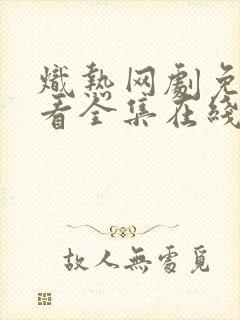 熾熱网劇免
看全集在线
故人無處覓